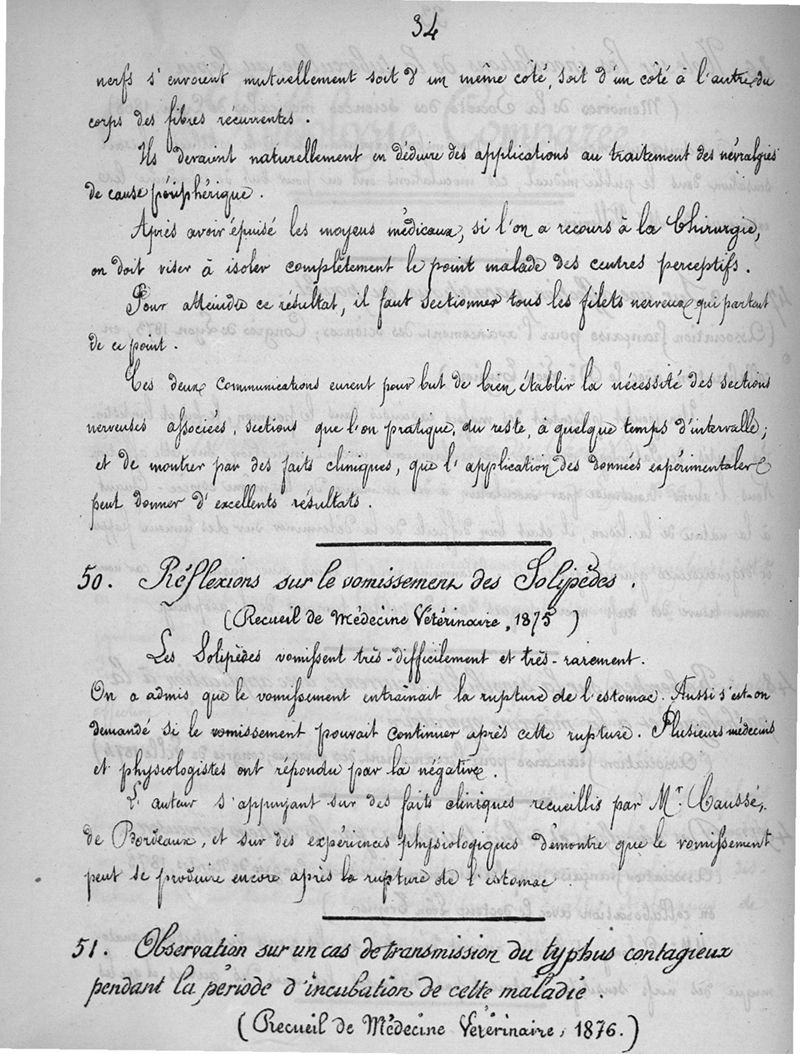 34
nerfs s'envoient mutuellement soit d'un même côté, soit d'un côté à l'autre du
corps des fibres récurrentes.
Ils devaient naturellement en déduire des applications au traitement des névralgies
de cause périphérique.
Après avoir épuisé les moyens médicaux, si l'on a recours à la Chirurgie,
on doit viser à isoler complètement le point malade des centres perceptifs.
Pour atteindre ce résultat, il faut sectionner tous les filets nerveux qui partent
de ce point.
Ces deux communications eurent pour but de bien établir la nécessité des sections
nerveuses associées, sections que l'on pratique, du reste, à quelque temps d'intervalle;
et de montrer par des faits cliniques, que l'application des données expérimentales
peut donner d'excellents résultats.
50. Réflexions sur le vomissement des Solipèdes.
(Recueil de Médecine Vétérinaire, 1875)
Les Solipèdes vomissent très-difficilement et très-rarement.
On a admis que le vomissement entraînait la rupture de l'estomac. Aussi s'est-on
demandé si le vomissement pouvait continuer après cette rupture. Plusieurs médecins
et physiologistes ont répondu par la négative.
L'auteur s'appuyant sur des faits cliniques recueillis par Mr. Caussé,
de Bordeaux, et sur des expériences physiologiques démontre que le vomissement
peut se produire encore après la rupture de l'estomac
51. Observation sur un cas de transmission du typhus contagieux
pendant la période d'incubation de cette maladie.
(Recueil de Médecine Vétérinaire, 1876.)